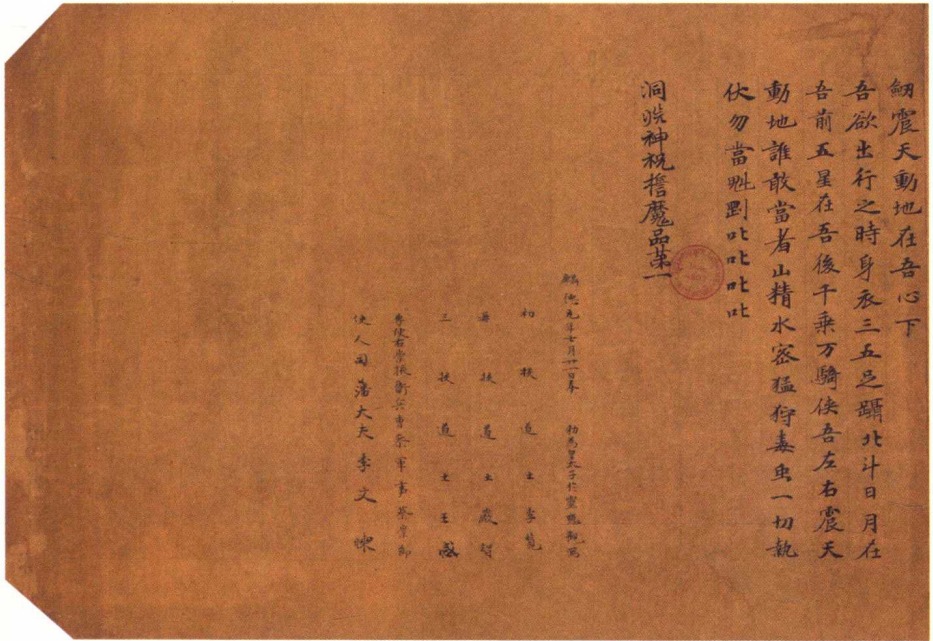 釼震天動地在吾心下
吾欲出行之時身衣三五足躡北斗日月在
吾前五星在吾後千乘万騎侠吾左右震天
動地誰敢當者山精水蜜猛狩毒虫一切執
伏勿當魁罡叱叱叱叱
洞淵神祝誓魔品第一
麟德元年七月廿一日奉 勑為皇太子於靈應觀寫
初挍道士李覽
再挍道士嚴智
三挍道士王感
專使右崇掖衛兵曹叅軍事蔡崇節
使人司藩大夫李文暕